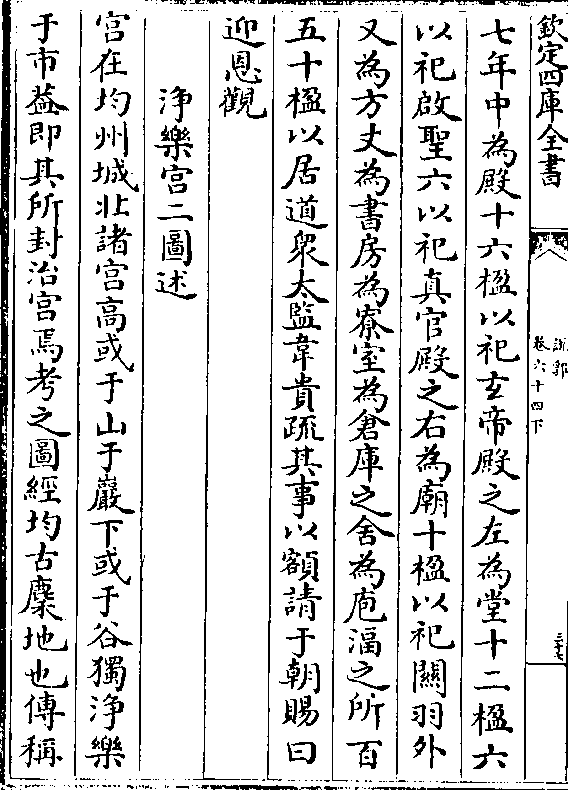 欽定四庫全書
說郛
卷六十四下
三十七
七年中為殿十六楹以祀玄帝殿之左為堂十二楹六
以祀啟聖六以祀真官殿之右為廟十楹以祀關羽外
又為方丈為書房為寮室為倉庫之舍為庖湢之所百
五十楹以居道衆太監韋貴疏其事以額請于朝賜曰
迎恩觀
淨樂宫二圖述
宫在均州城北諸宫高或于山于巖下或于谷獨淨樂
于市葢即其所封治宫焉考之圖經均古麇地也傳稱